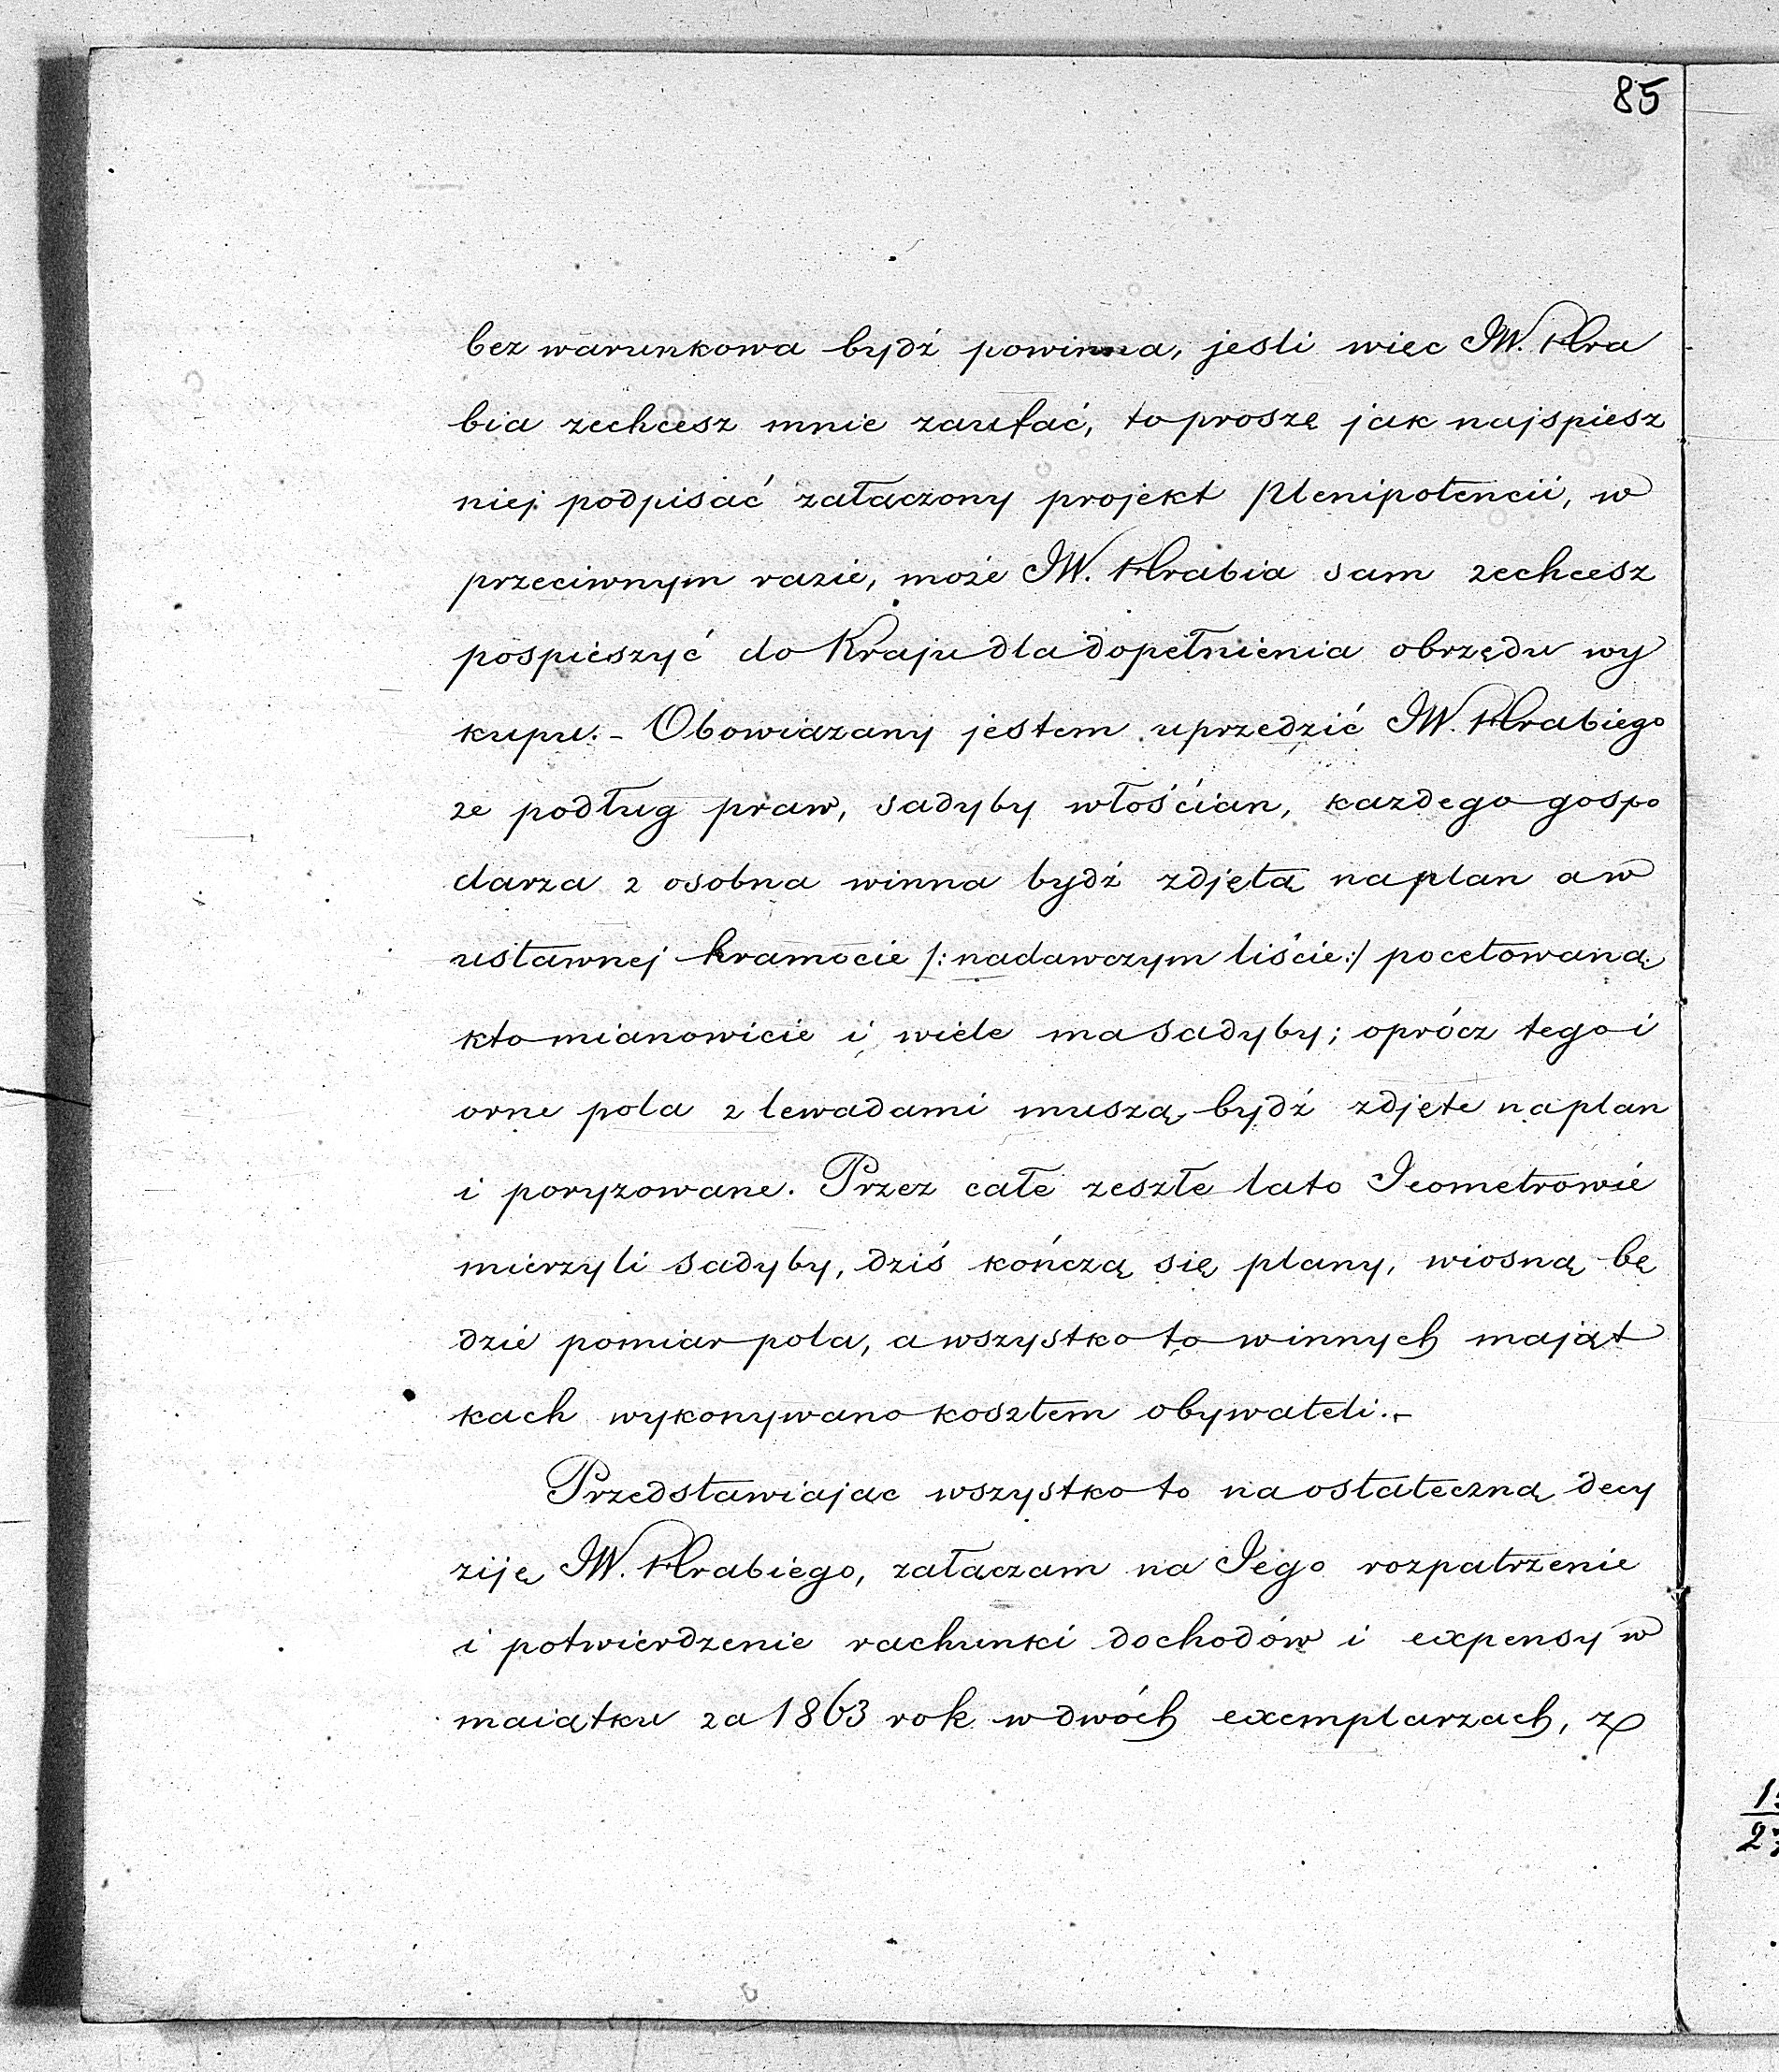 85
bez warunkowa bydź powinna, jesli więc JW. Hra
bia zechcesz mnie zaufać, to proszę jak najspiesz
niej podpisać załączony projekt Plenipotencii, w
przeciwnym razie, może JW. Hrabia sam zechcesz
pospieszyć do Kraju dla dopełnienia obrzędu wy
kupu. - Obowiązany jestem uprzedzić JW. Hrabiego
ze podług praw, sadyby włośćian, kazdego gospo
darza z osobna winna bydź zdjętą na plan a w
ustawnej hramocie /: nadawczym liście :/ pocetowaną
kto mianowicie i wiele ma sadyby; oprócz tego i
orne pola z lewadami muszą bydź zdjęte na plan
i poryzowane. Przez całe zeszłe lato Jeometrowie
mierzyli sadyby, dziś kończą się plany, wiosną bę
dzie pomiar pola, a wszystko to w innych mająt
kach wykonywano kosztem obywateli. -
Przedstawiając wszystko to na ostateczną decy
ziję JW. Hrabiego, załączam na Jego rozpatrzenie
i potwierdzenie rachunki dochodów i expensy w
maiątku za 1863 rok w dwóch exemplarzach, z